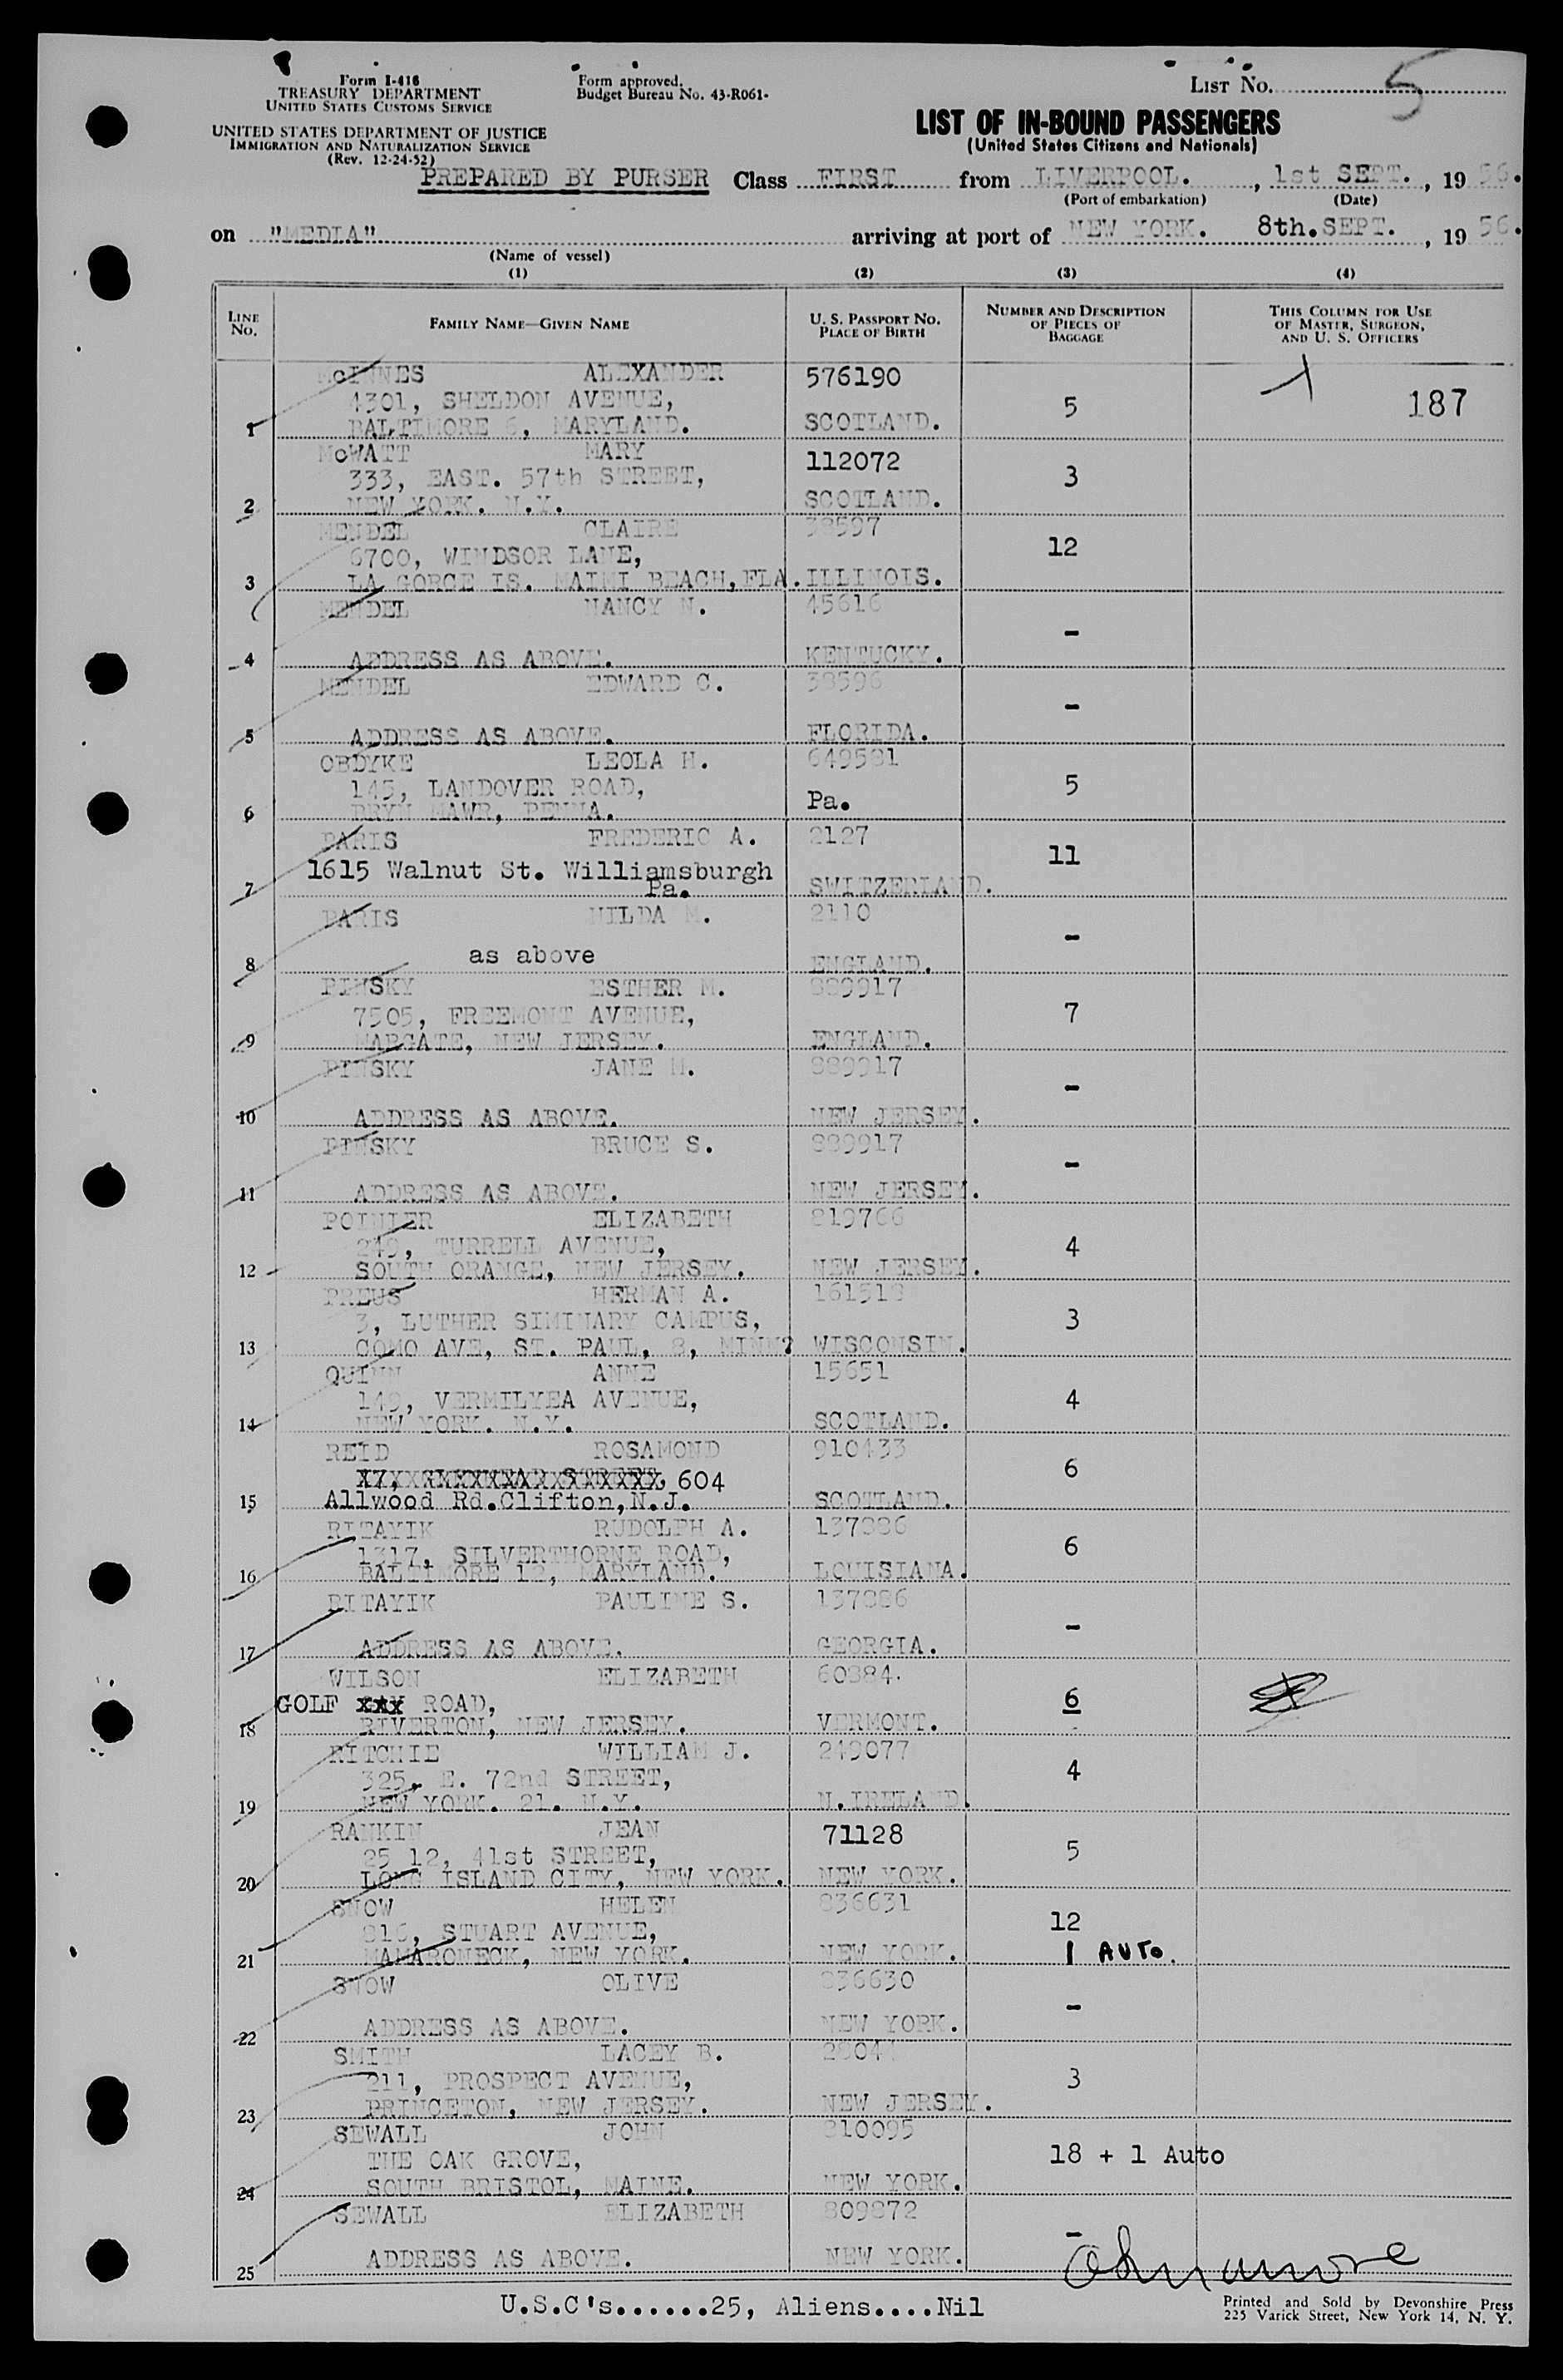 Form I-416
TREASURY DEPARTMENT
UNITED STATES CUSTOMS SERVICE
UNITED STATES DEPARTMENT OF JUSTICE
IMMIGRATION AND NATURALIZATION SERVICE
(Rev. 12-24-52)
Form approved.
Budget Bureau No. 43-R061-
LIST NO. 5
LIST OF IN-BOUND PASSENGERS
(United States Citizens and Nationals)
PREPARED BY PURSER Class FIRST from LIVERPOOL. , 1st SEPT. , 19 56.
(Port of embarkation) (Date)
on "MEDIA" arriving at port of NEW YORK. 8th.SEPT. , 19 56.
(Name of vessel)
(1) (2) (3) (4)
LINE NO. FAMILY NAME—GIVEN NAME U. S. PASSPORT NO. PLACE OF BIRTH NUMBER AND DESCRIPTION OF PIECES OF BAGGAGE THIS COLUMN FOR USE OF MASTER, SURGEON, AND U. S. OFFICERS
McINNES ALEXANDER 576190
4301, SHELDON AVENUE, 5 187
1 BALTIMORE 6, MARYLAND. SCOTLAND.
McWATT MARY 112072
333, EAST. 57th STREET, 3
2 NEW YORK. N.Y. SCOTLAND.
MENDEL CLAIRE 38597
6700, WINDSOR LANE, 12
3 LA GORCE IS. MAIMI BEACH, FLA. ILLINOIS.
MENDEL NANCY N. 45616
-
4 ADDRESS AS ABOVE. KENTUCKY.
MENDEL EDWARD C. 38596
-
5 ADDRESS AS ABOVE. FLORIDA.
OBDYKE LEOLA H. 649581
145, LANDOVER ROAD, 5
6 BRYN MAWR, PENNA. Pa.
PARIS FREDERIC A. 2127
1615 Walnut St. Williamsburgh 11
7 Pa. SWITZERLAND.
PARIS HILDA M. 2110
-
8 as above ENGLAND.
PINSKY ESTHER M. 889917
7505, FREEMONT AVENUE, 7
9 MARGATE, NEW JERSEY. ENGLAND.
PINSKY JANE M. 889917
-
10 ADDRESS AS ABOVE. NEW JERSEY.
PINSKY BRUCE S. 889917
-
11 ADDRESS AS ABOVE. NEW JERSEY.
POINIER ELIZABETH 819766
249, TURRELL AVENUE, 4
12 SOUTH ORANGE, NEW JERSEY. NEW JERSEY.
PREUS HERMAN A. 161518
3, LUTHER SIMINARY CAMPUS, 3
13 COMO AVE, ST. PAUL, 8, MINN? WISCONSIN.
QUINN ANNE 15651
149, VERMILYEA AVENUE, 4
14 NEW YORK. N.Y. SCOTLAND.
REID ROSAMOND 910433
604 6
15 Allwood Rd.Clifton,N.J. SCOTLAND.
RITAYIK RUDOLPH A. 137886
1317, SILVERTHORNE ROAD, 6
16 BALTIMORE 12, MARYLAND. LOUISIANA.
RITAYIK PAULINE S. 137886
-
17 ADDRESS AS ABOVE. GEORGIA.
WILSON ELIZABETH 60884.
GOLF xxx ROAD, 6
18 RIVERTON, NEW JERSEY. VERMONT.
RITCHIE WILLIAM J. 249077
325, E. 72nd STREET, 4
19 NEW YORK. 21. N.Y. N.IRELAND.
RANKIN JEAN 71128
25 12, 41st STREET, 5
20 LONG ISLAND CITY, NEW YORK. NEW YORK.
SNOW HELEN 836631
816, STUART AVENUE, 12
21 MAMARONECK, NEW YORK. NEW YORK. 1 AUTO.
SNOW OLIVE 836630
-
22 ADDRESS AS ABOVE. NEW YORK.
SMITH LACEY B.
211, PROSPECT AVENUE, 3
23 PRINCETON, NEW JERSEY. NEW JERSEY.
SEWALL JOHN 810095
THE OAK GROVE, 18 + 1 Auto
24 SOUTH BRISTOL, MAINE. NEW YORK.
SEWALL ELIZABETH 809872
-
25 ADDRESS AS ABOVE. NEW YORK.
U.S.C's......25, Aliens....Nil
Printed and Sold by Devonshire Press
225 Varick Street, New York 14, N. Y.